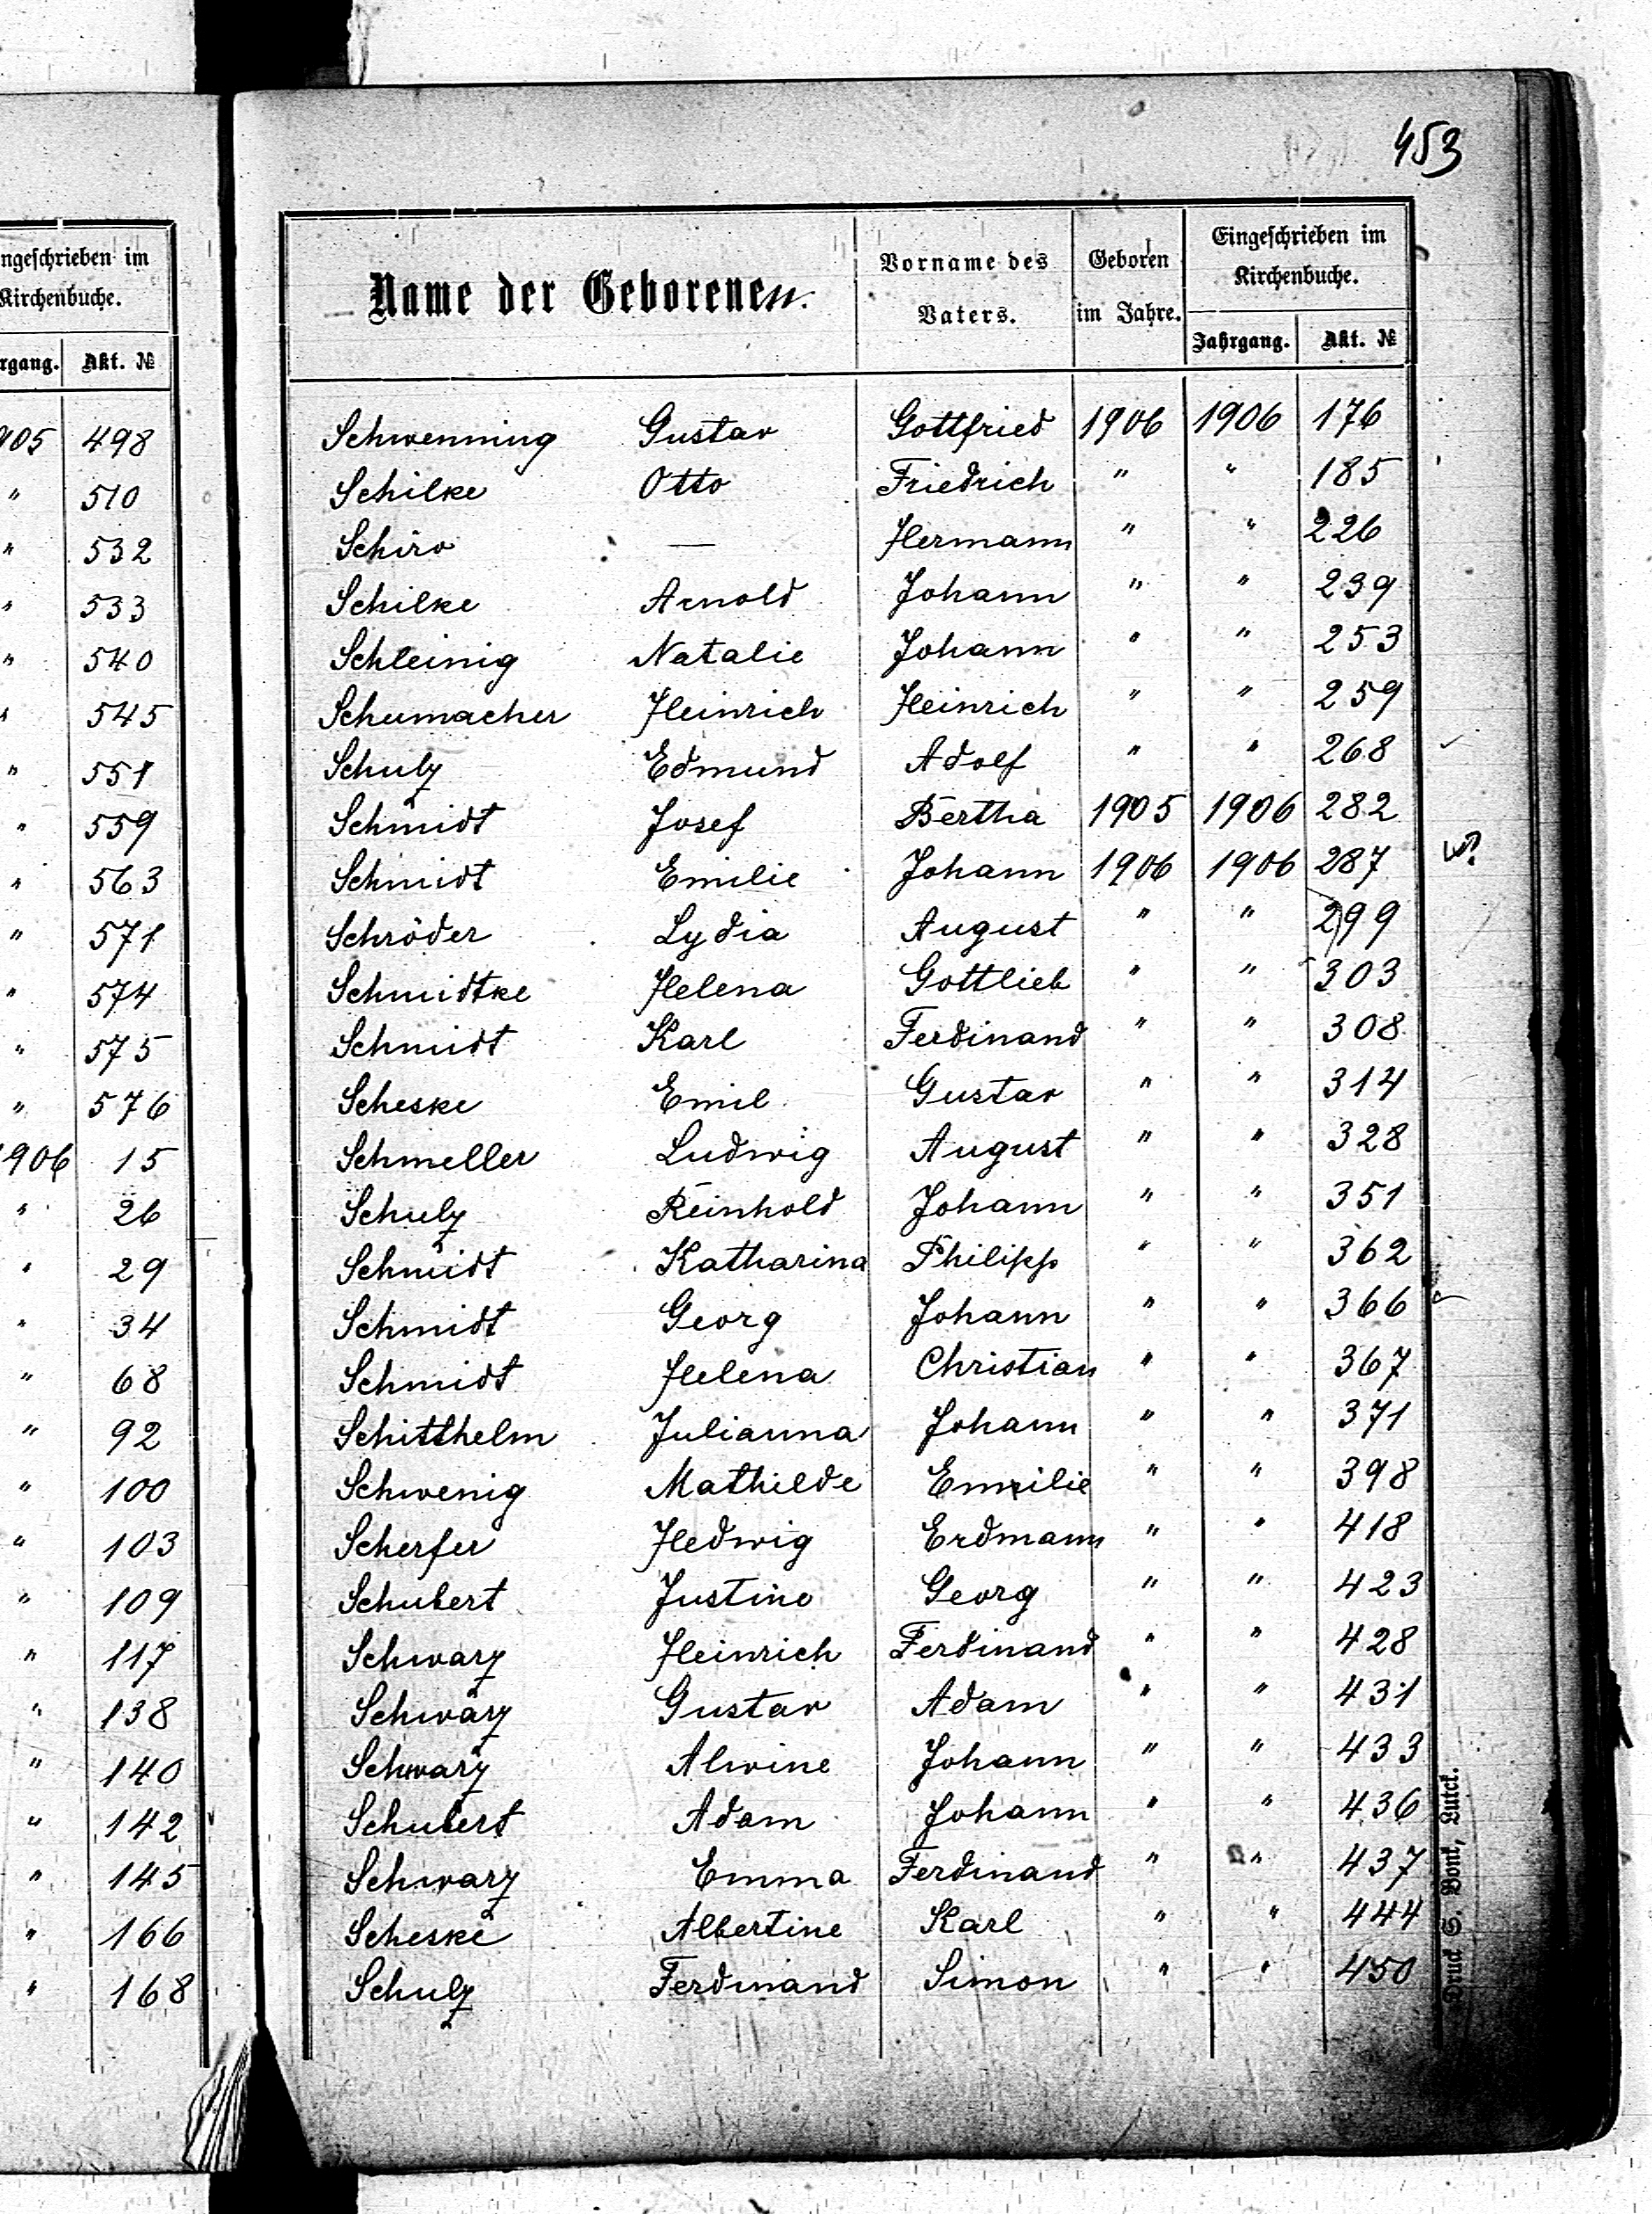 453
ngeschrieben im
Kirchenbuche.
rgang. Akt. №
905 498
" 510
" 532
" 533
" 540
" 545
" 551
" 559
" 563
" 571
" 574
" 575
" 576
1906 15
" 26
" 29
" 34
" 68
" 92
" 100
" 103
" 109
" 117
" 138
" 140
" 142
" 145
" 166
" 168
Name der Geborenen. Vorname des Vaters. Geboren im Jahre. Eingeschrieben im Kirchenbuche.
Jahrgang. Akt. №
Schwenning Gustav Gottfried 1906 1906 176
Schilke Otto Friedrich " " 185
Schirv — Hermann " " 226
Schilke Arnold Johann " " 239
Schleinig Natalie Johann " " 253
Schumacher Heinrich Heinrich " " 259
Schulz Edmund Adolf " " 268
Schmidt Josef Bertha 1905 1906 282
Schmidt Emilie Johann 1906 1906 287
Schröder Lydia August " " 299
Schmidtke Helena Gottlieb " " 303
Schmidt Karl Ferdinand " " 308
Scheske Emil Gustav " " 314
Schmeller Ludwig August " " 328
Schulz Reinhold Johann " " 351
Schmidt Katharina Philipp " " 362
Schmidt Georg Johann " " 366
Schmidt Helena Christian " " 367
Schitthelm Julianna Johann " " 371
Schwenig Mathilde Emilie " " 398
Scherfer Hedwig Erdmann " " 418
Schubert Justine Georg " " 423
Schwarz Heinrich Ferdinand " " 428
Schwarz Gustav Adam " " 431
Schwarz Alwine Johann " " 433
Schubert Adam Johann " " 436
Schwarz Emma Ferdinand " " 437
Scheske Albertine Karl " " 444
Schulz Ferdinand Simon " " 450
Druck S. Bonk, Luck.